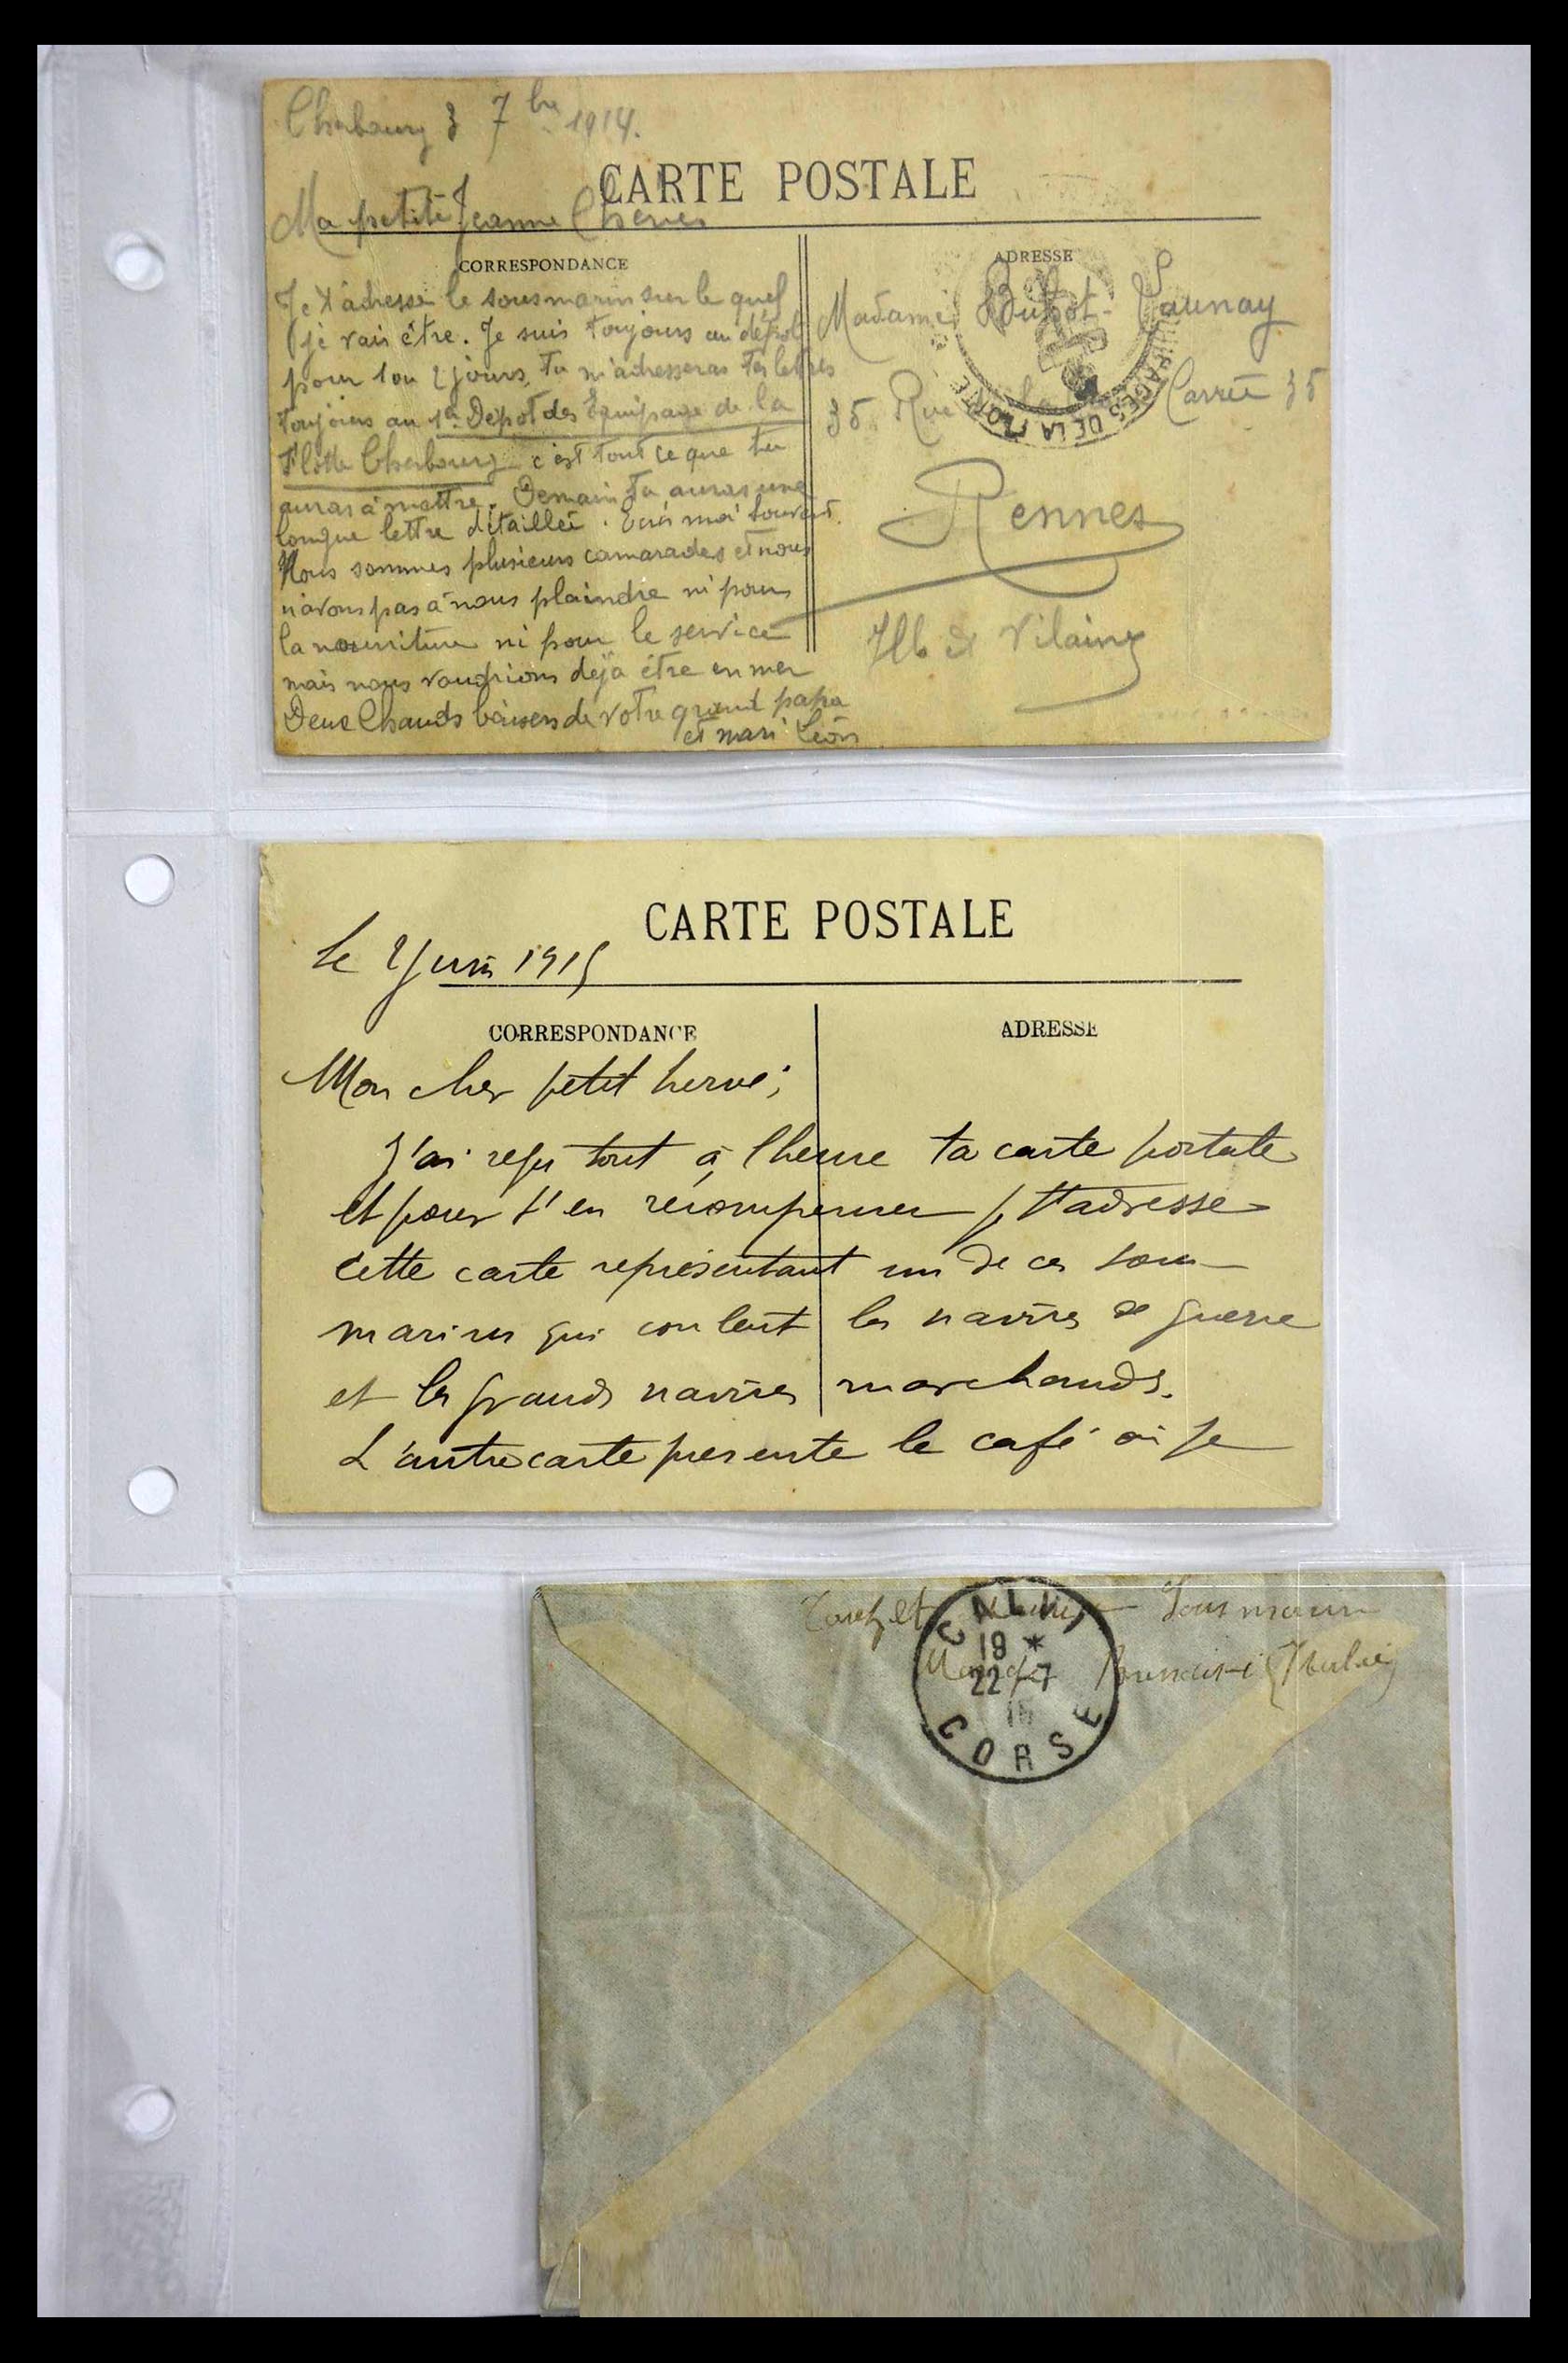 Cherbourg 3 7bre 1914.
CARTE POSTALE
Ma petite Jeanne Cherie
CORRESPONDANCE
Je t'adresse le sousmarin sur le quel
je vais être. Je suis toujours au dépot
pour 1 ou 2 jours, tu m'adresseras tes lettres
toujours au 1er Dépot des Equipage de la
Flotte Cherbourg c'est tout ce que tu
auras à mettre. Demain tu auras une
longue lettre détaillée. Ecris moi souvent.
Nous sommes plusieurs camarades et nous
n'avons pas à nous plaindre ni pour
la nourriture ni pour le service
mais nous voudrions déjà être en mer
Deux Chauds baisers de votre grand papa
et mari Léon
ADRESSE
Madame Launay
35 Rue Carrée 35
Rennes
Ille & Vilaine
EQUIPAGES DE LA FLOTTE
CARTE POSTALE
le 2 Juin 1915
CORRESPONDANCE
ADRESSE
Mon cher petit hervé;
J'ai reçu tout à l'heure ta carte postale
et pour t'en récompenser je t'adresse
cette carte représentant un de ces sous-
marins qui coulent les navires de guerre
et les grands navires marchands.
L'autre carte présente le café où je
Sous marin
Brindisi (Italie)
CALVI
19 *
22-7
CORSE